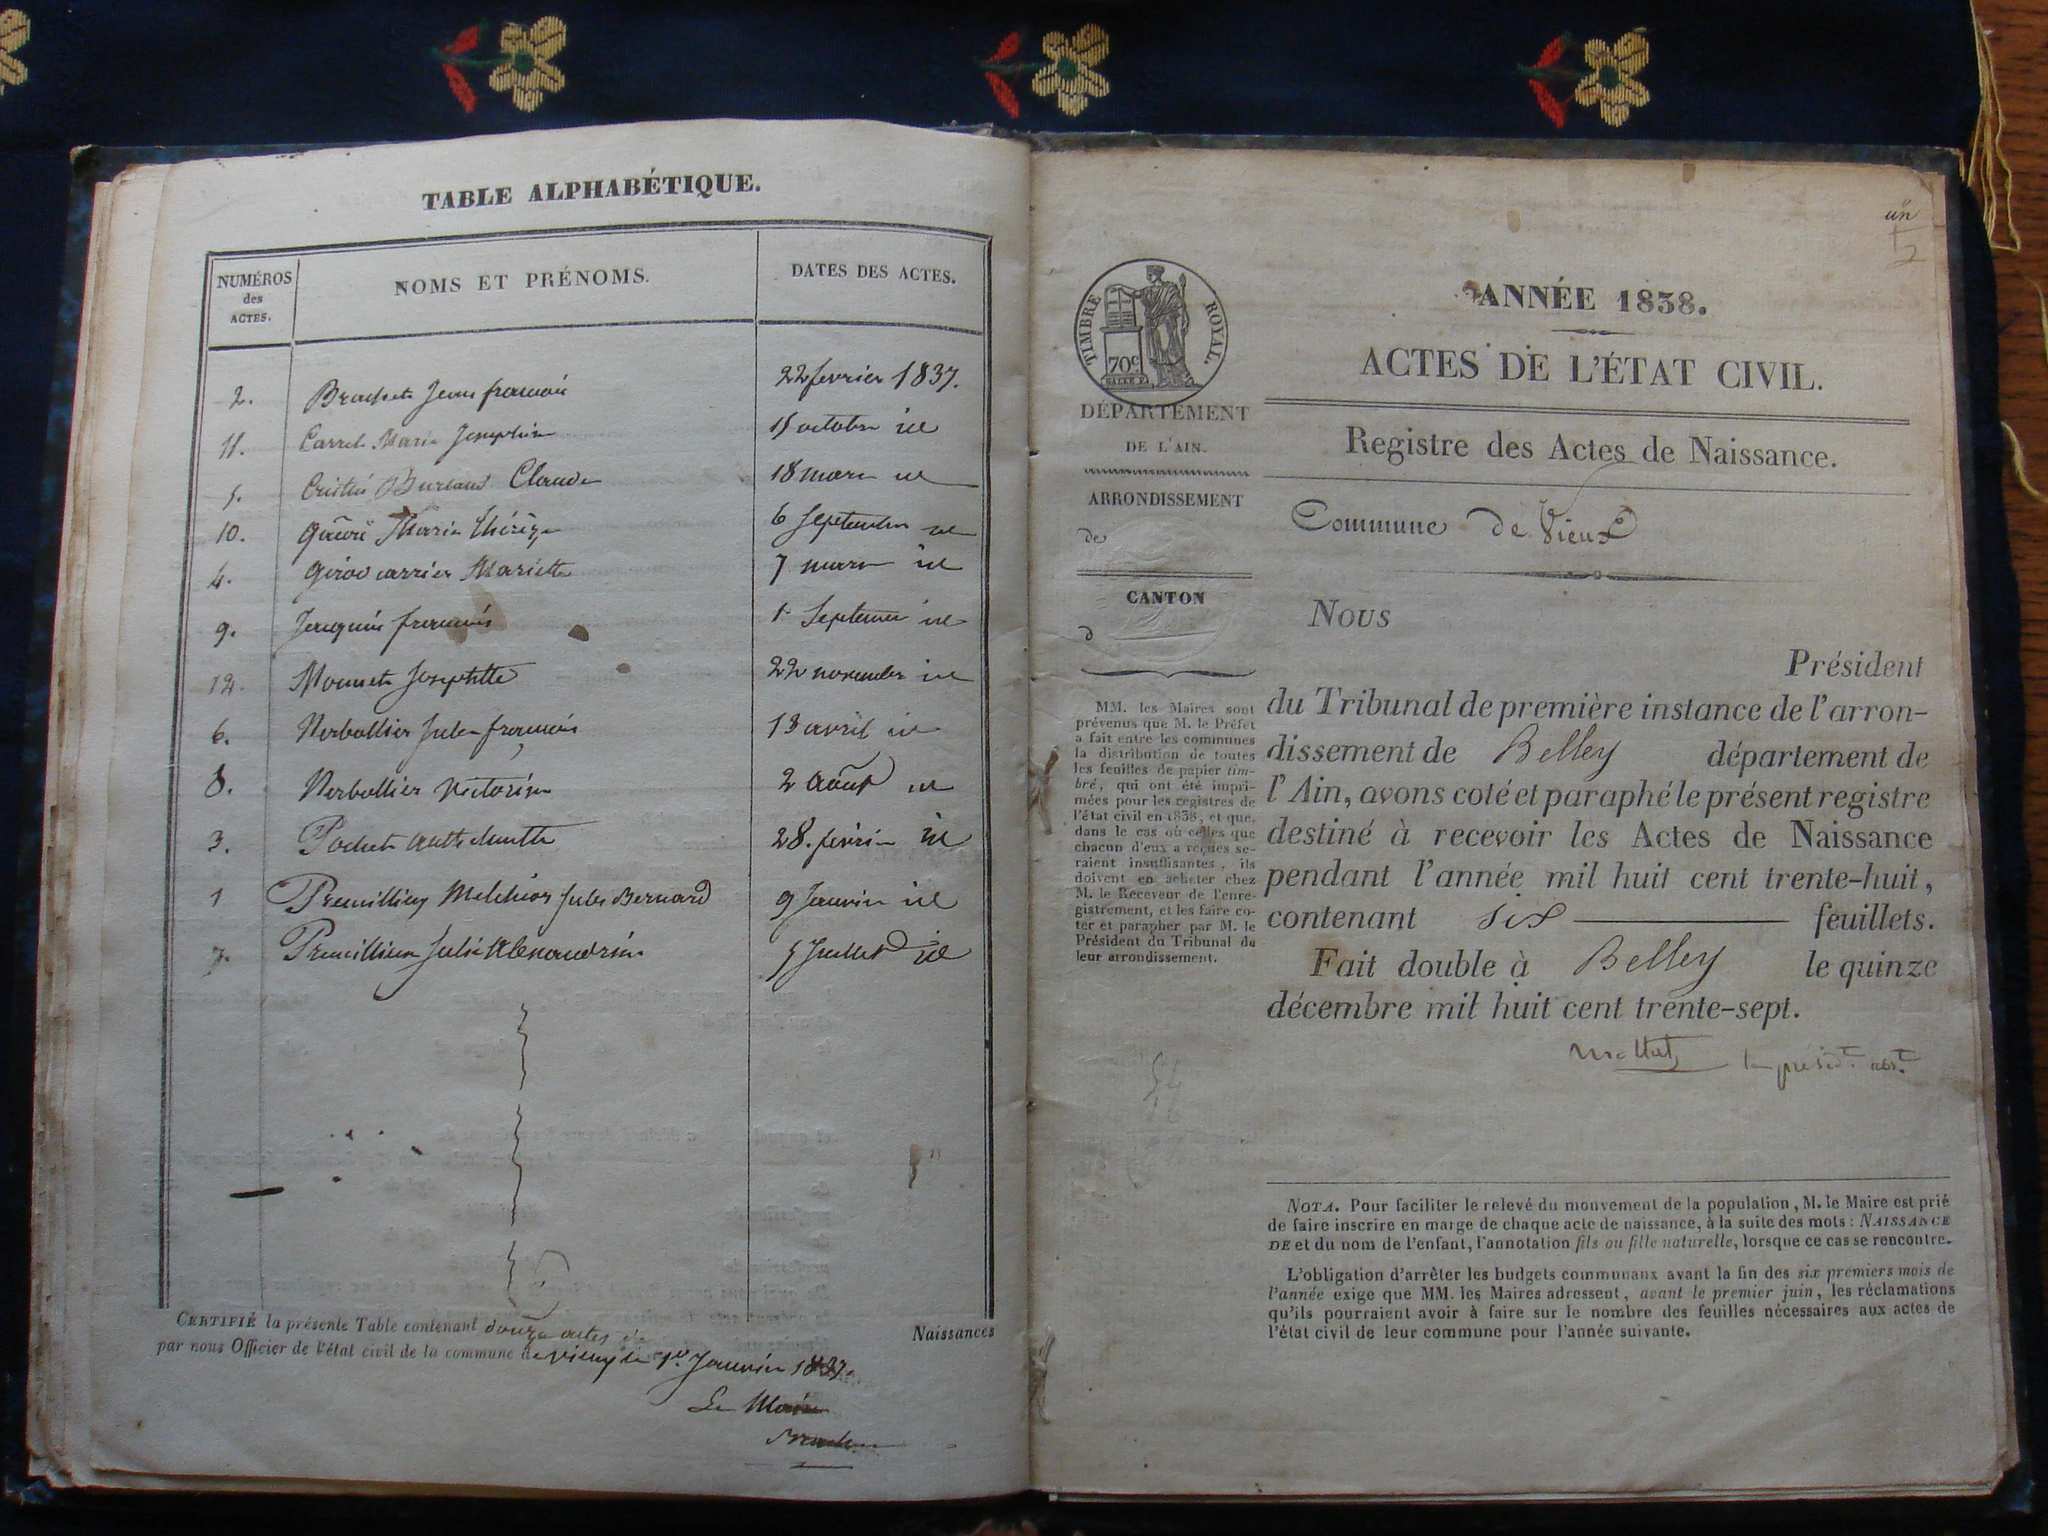 TABLE ALPHABÉTIQUE.
NUMÉROS
des
ACTES.
NOMS ET PRÉNOMS.
DATES DES ACTES.
2. Brachet Jean françois 22 fevrier 1837.
11. Carrel Marie Josephine 15 octobre id
5. Burlaud Claude 18 mars id
10. Marie Thérèze 6 Septembre id
4. Girod carrier Mariette 7 mars id
9. Jacquin françois 1er Septembre id
12. Monnet Josephtte 22 novembre id
6. Nerbollier Jules françois 13 avril id
8. Nerbollier Victorine 2 Août id
3. Pochet Anthelmette 28. fevrier id
1 Premillieu Melchior Jules Bernard 9 Janvier id
7. Premillieu Julie Alexandrine 5 Juillet id
CERTIFIÉ la présente Table contenant douze actes
Naissances
par nous Officier de l'état civil de la commune de Vieu, le 1er Janvier 1837.
Le Maire
un
TIMBRE ROYAL.
70c
DÉPARTEMENT
DE L'AIN.
ARRONDISSEMENT
de
CANTON
d
MM. les Maires sont
prévenus que M. le Préfet
a fait entre les communes
la distribution de toutes
les feuilles de papier tim-
bré, qui ont été impri-
mées pour les registres de
l'état civil en 1838, et que,
dans le cas où celles que
chacun d'eux a reçues se-
raient insuffisantes, ils
doivent en acheter chez
M. le Receveur de l'enre-
gistrement, et les faire co-
ter et parapher par M. le
Président du Tribunal de
leur arrondissement.
ANNÉE 1838.
ACTES DE L'ÉTAT CIVIL.
Registre des Actes de Naissance.
Commune de Vieux
NOUS
Président
du Tribunal de première instance de l'arron-
dissement de Belley département de
l'Ain, avons coté et paraphé le présent registre
destiné à recevoir les Actes de Naissance
pendant l'année mil huit cent trente-huit,
contenant six feuillets.
Fait double à Belley le quinze
décembre mil huit cent trente-sept.
NOTA. Pour faciliter le relevé du mouvement de la population, M. le Maire est prié
de faire inscrire en marge de chaque acte de naissance, à la suite des mots : NAISSANCE
DE et du nom de l'enfant, l'annotation fils ou fille naturelle, lorsque ce cas se rencontre.
L'obligation d'arrêter les budgets communaux avant la fin des six premiers mois de
l'année exige que MM. les Maires adressent, avant le premier juin, les réclamations
qu'ils pourraient avoir à faire sur le nombre des feuilles nécessaires aux actes de
l'état civil de leur commune pour l'année suivante.